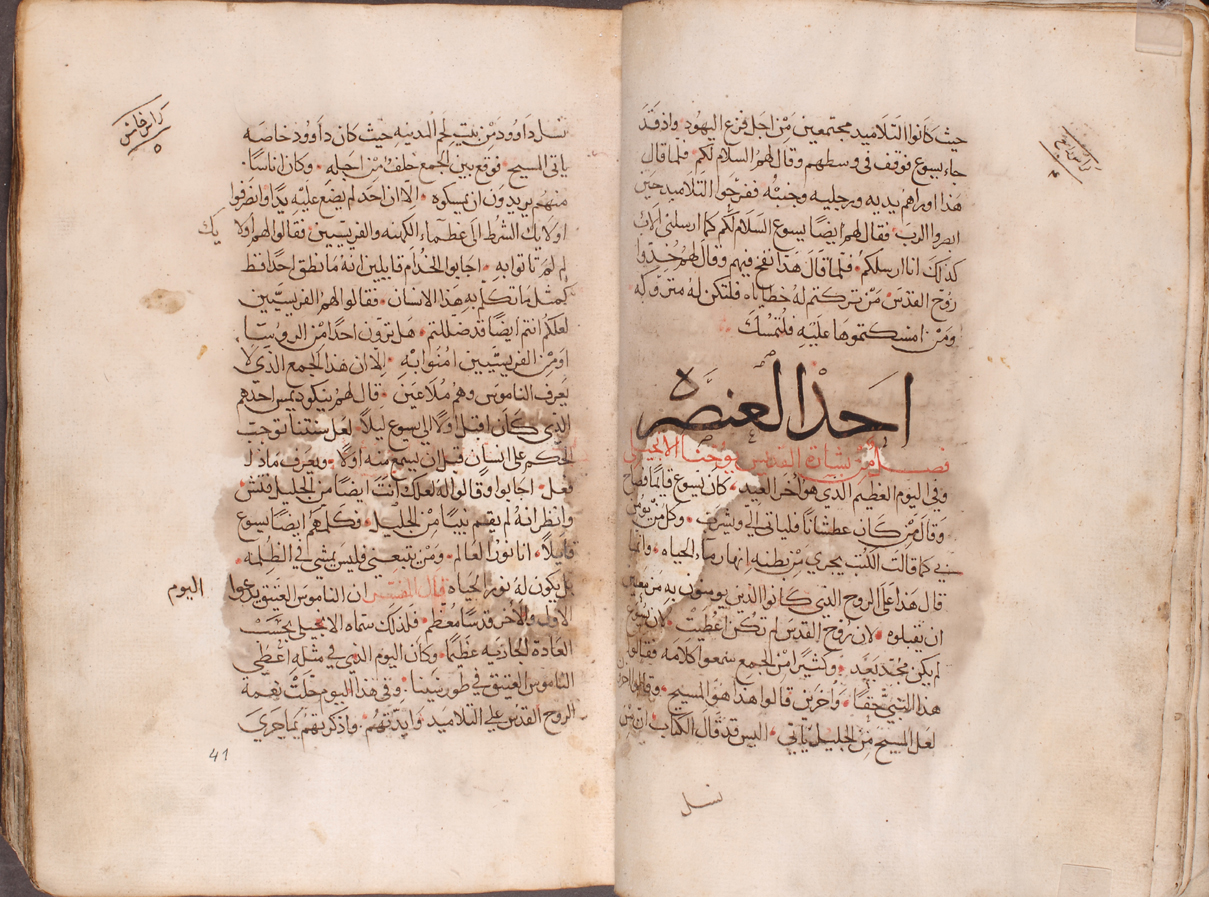 حيث كانوا التلاميد مجتمعين مٓن اجل فزع اليهود واذ قد
جاء يسوع فوقف في وسطهم وقال لهم السلام لكم فلما قال
هذا اوراهم يديه ورجليه وجنبه ففرحوا التلاميد حين
ابصروا الرب فقال لهم ايضًا يسوع السلام لكم كما ارسلني الاب
كذلك انا ارسلكم فلما قال هذا نفخ فيهم وقال لهم خدوا
روح القدس مَن تركتم له خطاياه فلتكن له متروكه
ومَن امسكتموها عليه فلتمسك
احد العنصره
فصل من بشارة القديس يوحنا الانجيلي
وفي اليوم العظيم الدي هو اخر العيد كان يسوع قايمًا فصاح
وقال مَن كان عطشانًا فلياتي الي ويشرب وكل مَن يومن
بي كما قالت الكتب يجري مِن بطنه انهار ماء الحياه وانما
قال هذا على الروح الدي كانوا الذين يومنون به مزمعين
ان يقبلوه لان روح القدس لم تكن اعطيت لان يسوع
لم يكن مجد بعد وكثيرًا من الجمع سمعوا كلامه فقالوا
هذا النبي حقًا واخرين قالوا هذا هو المسيح وقالوا اخرين
لعل المسيح مِن الجليل ياتي اليس قد قال الكتاب ان مِن
نسل
كراس خامس
٥
نسل داوود مِن بيت لحم المدينه حيث كان داوود خاصه
ياتي المسيح فوقع بين الجمع خلف مِن اجله وكان اناسًا
منهم يريدون ان يمسكوه الا ان احد لم يضع عليه يدًا وانصرفوا
اولايك الشرط الى عظماء الكهنه والفريسيين فقالوا لهم اولايك
لِم لَم تاتوا به اجابوا الخدام قايلين انه ما نطق احد قط
كمثل ما تكلم به هذا الانسان فقالوا لهم الفريسيين
لعلكم انتم ايضًا قد ضللتم هل ترون احدًا من الروسا
او مِن الفريسيين امنوا به الا ان هذا الجمع الذي لا
يعرف الناموس وهم ملاعين قال لهم نيكوديمس احدهم
الذي كان اقبل اولًا الى يسوع ليلًا لعل سنتنا توجب
الحكم على انسان قبل ان يسمع منه اولًا ويعرف ماذا
فعل اجابوا وقالوا له لعلك انت ايضًا من الجليل فتش
وانظر انه لم يقم نبيًا مِن الجليل وكلمهم ايضًا يسوع
قايلًا انا نور العالم ومَن يتبعني فليس يمشي في الظلمه
بل يكون له نور الحياه قال المفسر ان الناموس العتيق يدعوا اليوم
الاول والاخر قدسًا معظم فلذلك سماه الانجيلي بحسب
العادة الجاريه عظيمًا وكان اليوم الذي في مثله اعطي
الناموس العتيق في طور سينا وفي هذا اليوم حلت نعمة
الروح القدس على التلاميد وايدتهم واذكرتهم بما جرى
41